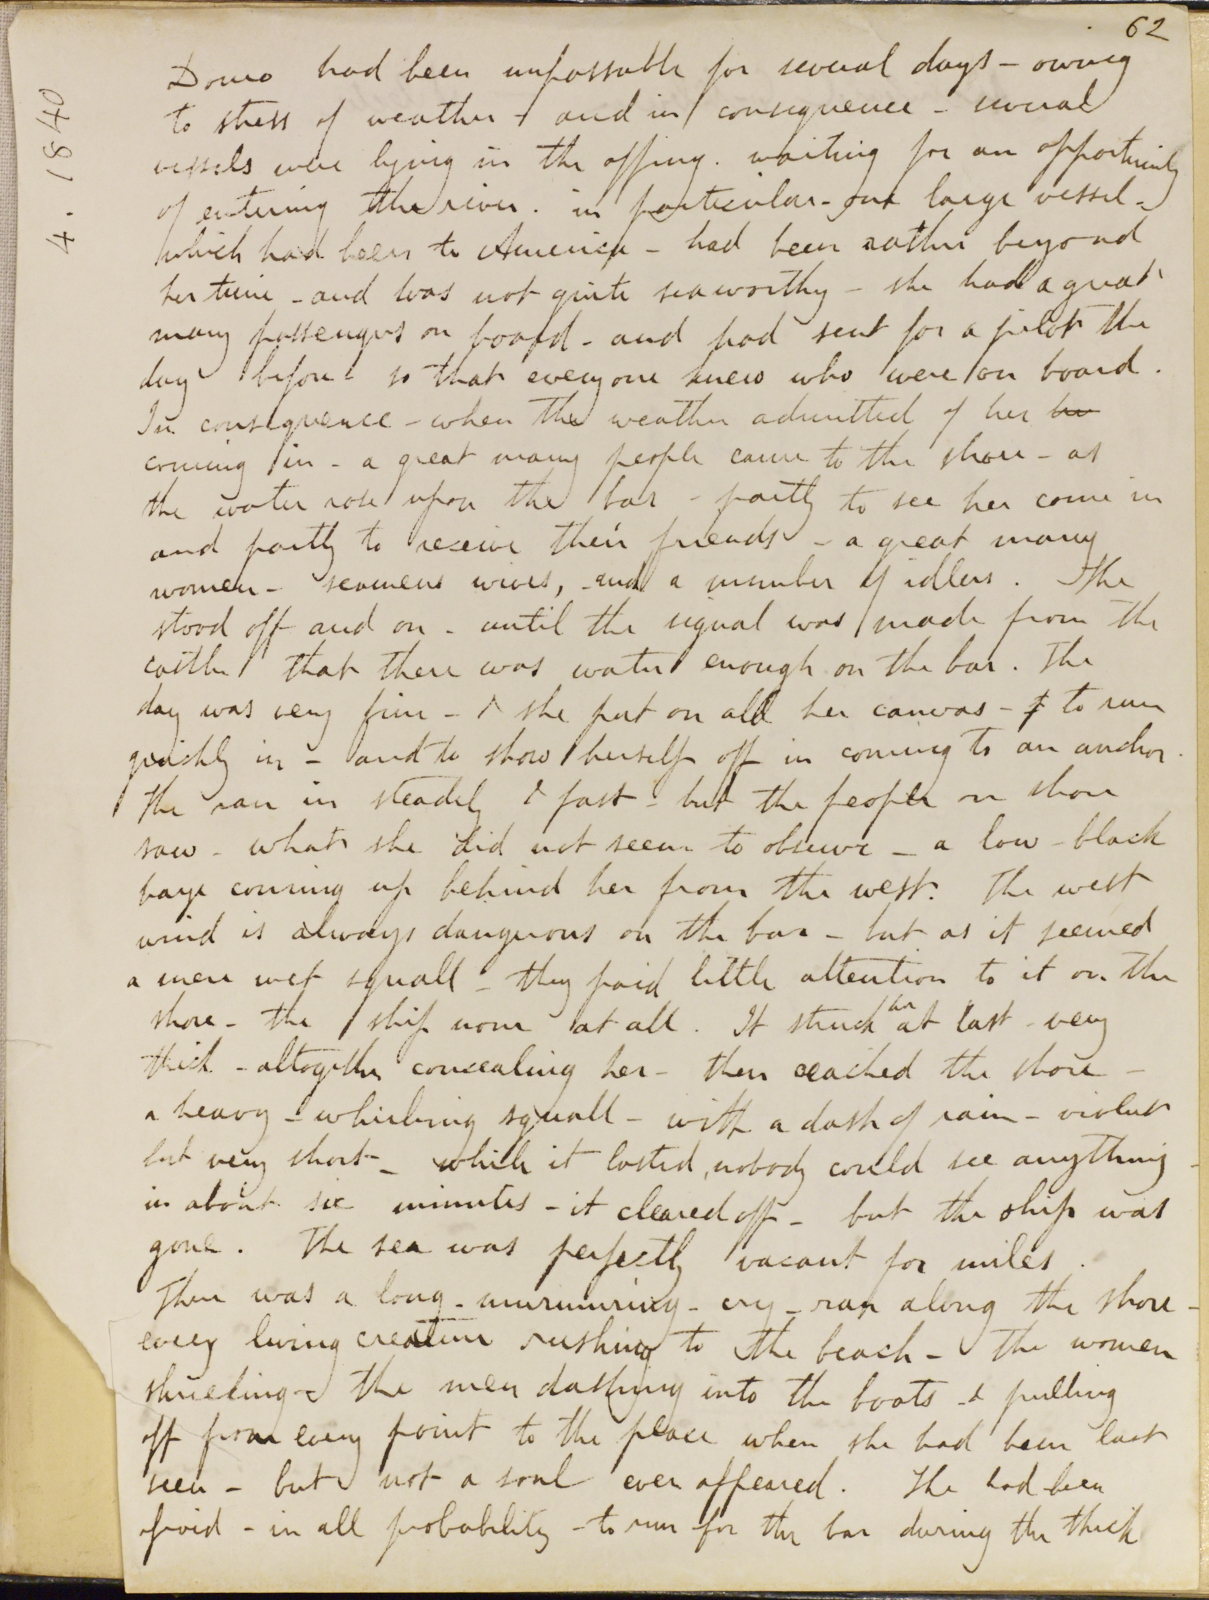 62
4. 1840
Douro had been impassable for several days - owing
to stress of weather - and in consequence - several
vessels were lying in the offing. waiting for an opportunity
of entering the river. in particular - one large vessel -
which had been to America - had been rather beyond
her time - and was not quite seaworthy - she had a great
many passengers on board - and had sent for a pilot the
day before so that everyone knew who were on board.
In consequence - when the weather admitted of her
coming in - a great many people came to the shore - as
the water rose upon the bar - partly to see her come in
and partly to receive their friends - a great many
women - seamens wives, - and a number of idlers. She
stood off and on - until the signal was made from the
castle that there was water enough on the bar. The
day was very fine - & she put on all her canvas - to run
quickly in - and to show herself off in coming to an anchor.
She ran in steadily & fast - but the people on shore
saw - what she did not seem to observe - a low - black
haze coming up behind her from the west. The west
wind is always dangerous on the bar - but as it seemed
a mere wet squall - they paid little attention to it on the
shore - the ship none at all. It struck her at last - very
thick - altogether concealing her - then reached the shore -
a heavy - whirling squall - with a dash of rain - violent
but very short - while it lasted, nobody could see anything -
in about six minutes - it cleared off - but the ship was
gone. The sea was perfectly vacant for miles.
There was a long - murmuring - cry - ran along the shore -
every living creature rushing to the beach - the women
shrieking - the men dashing into the boats & pulling
off from every point to the place where she had been last
seen - but not a soul ever appeared. She had been
afraid - in all probability - to run for the bar during the thick